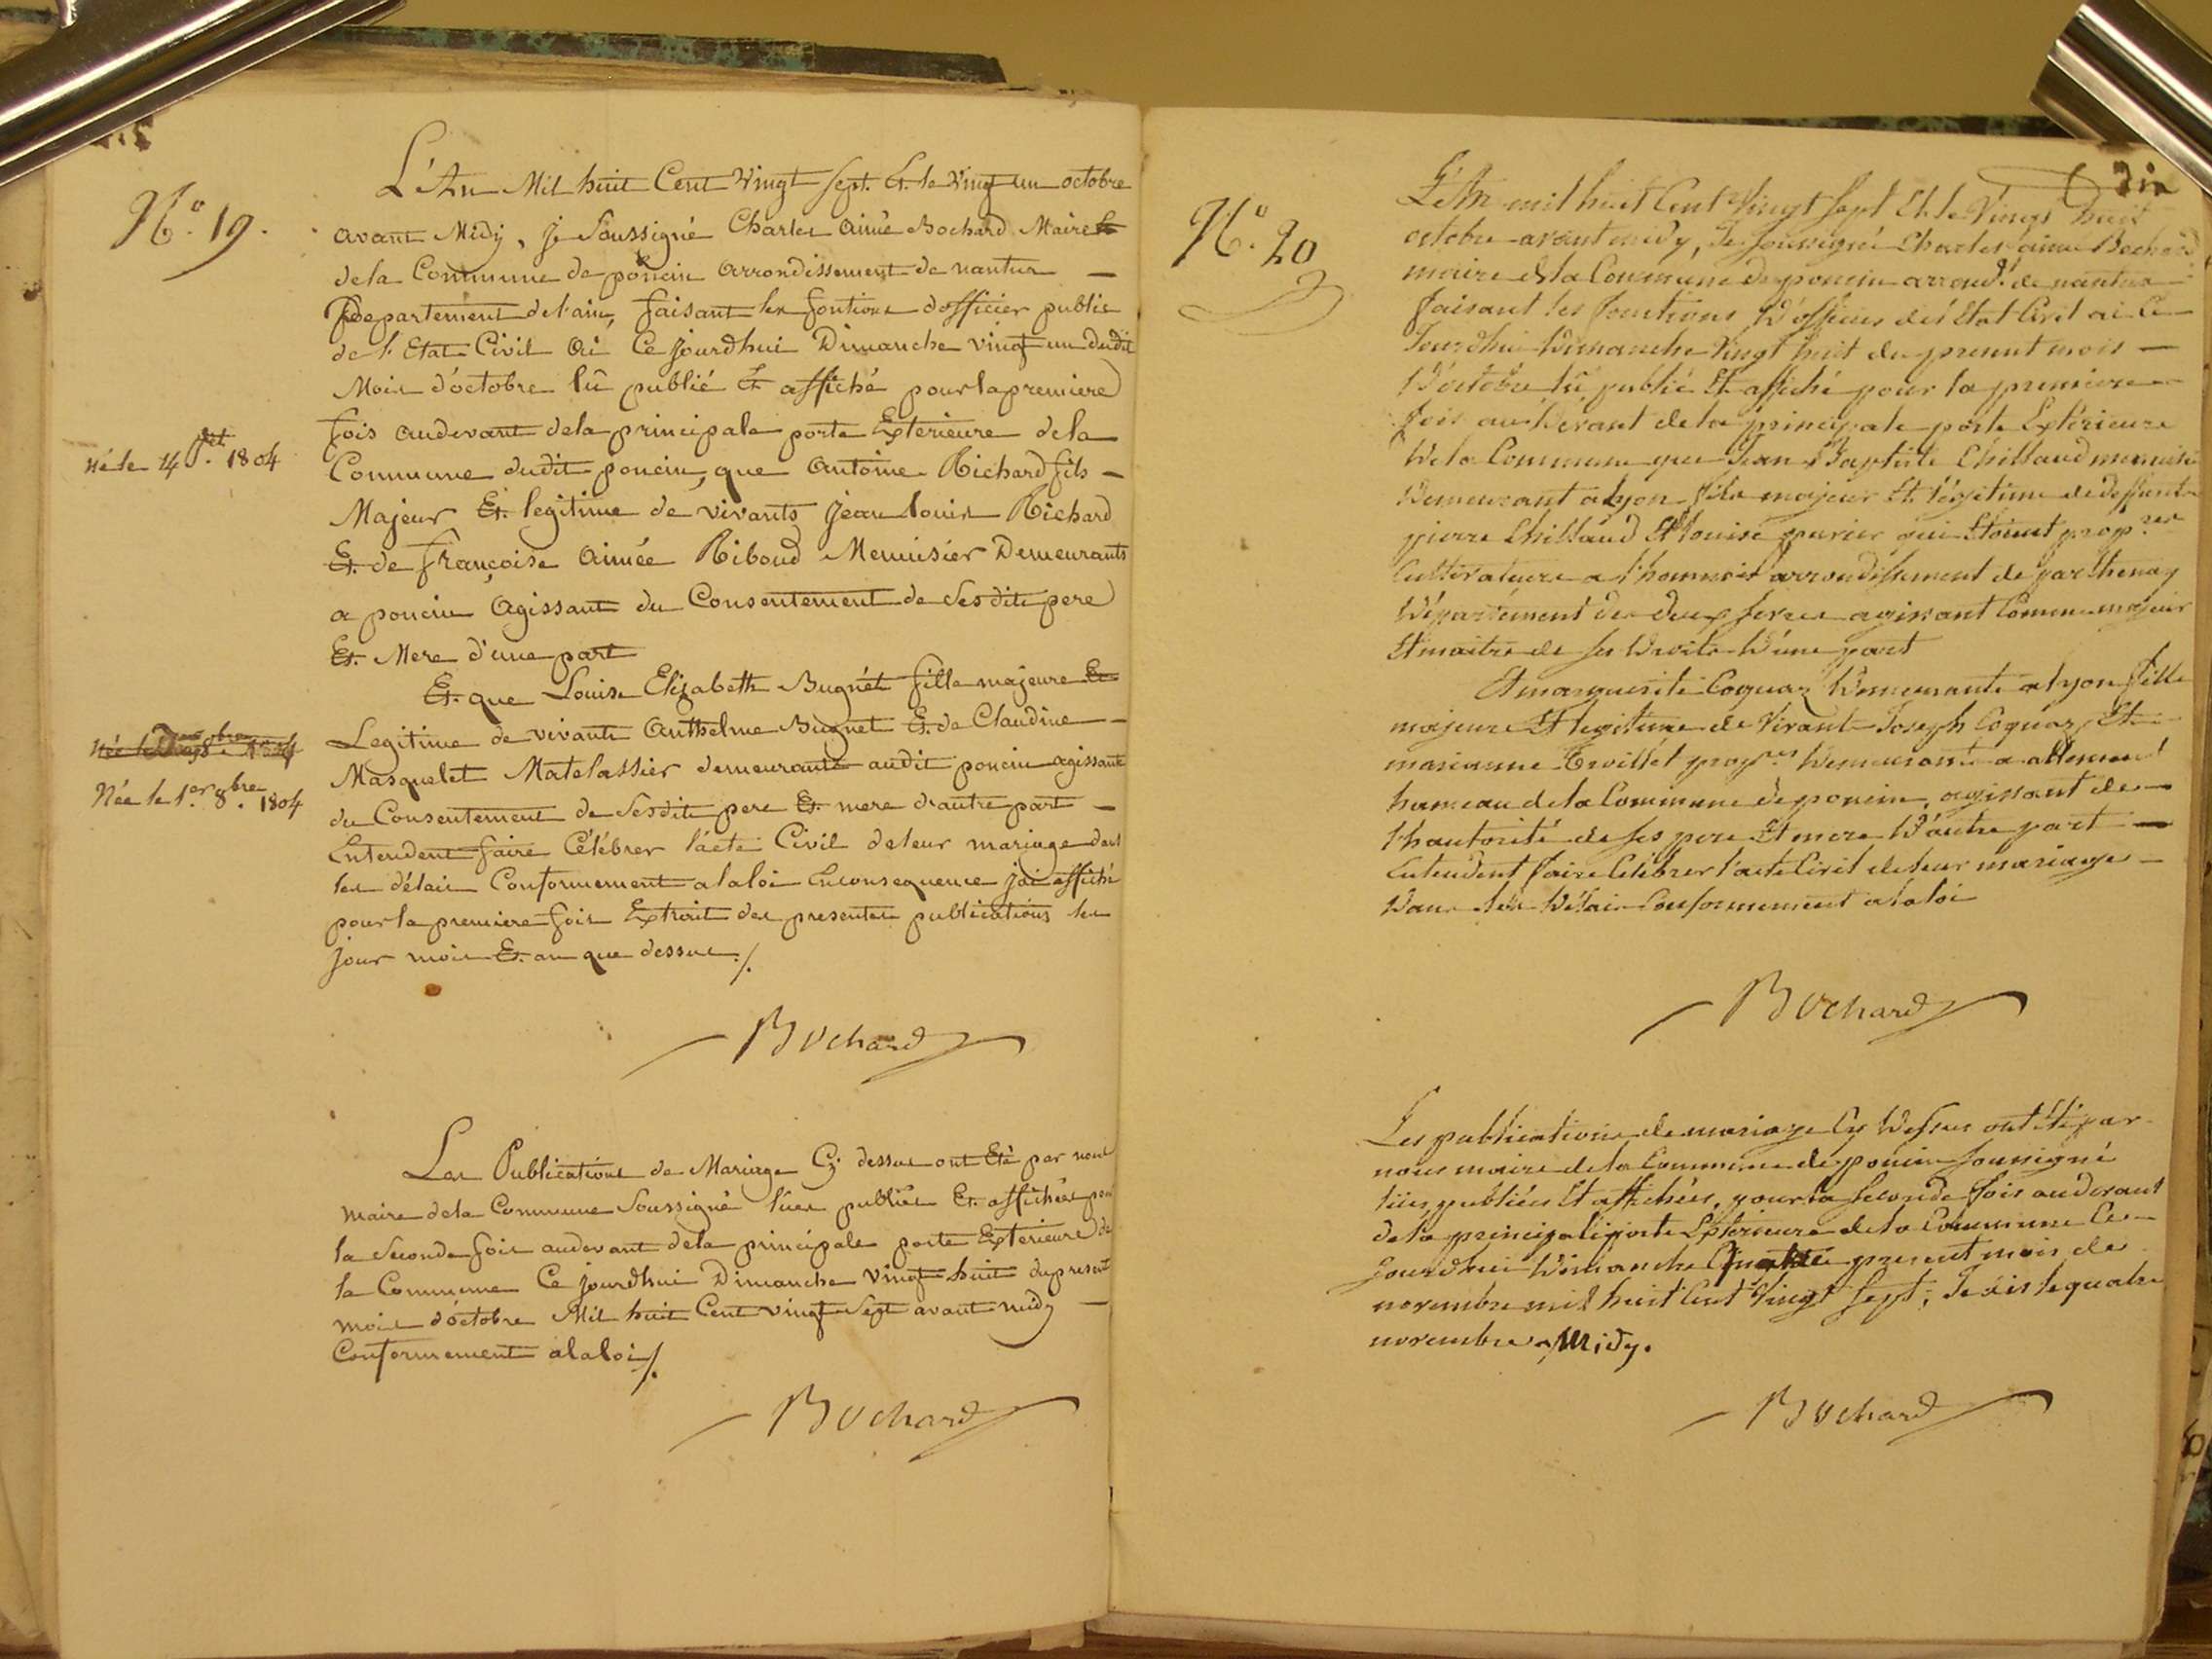 N.o 19.
L'An Mil huit Cent Vingt Sept. Et. le Vingt un octobre
avant Midy, Je Soussigné Charles aimé Bochard Maire
de la Commune de poncin arrondissement de nantua
Departement de l'ain, faisant les fontions dofficier public
de l'Etat Civil Ai Ce jourdhui Dimanche vingt un dudit
Mois d'octobre lû publié Et affiché pour la premiere
fois audevant dela principale porte Exterieure dela
né le 14 jet. 1804
Commune dudit poncin, que antoine Richard fils
Majeur Et. legitime de vivants Jean louis Richard
Et. de françoise aimée Riboud Menuisier Demeurants
a poncin agissant du Consentement de Sesdits pere
Et. Mere d'une part
Et. que Louise Elizabeth Bugnét fille majeure Et
Legitime de vivants Anthelme Bugnet Et. de Claudine
Née le 1.er 8.bre 1804
Masquelet Matelassier demeurants audit poncin agissant
du Consentement de Sesdits pere Et. mere d'autre part
Entendent faire Célébrer lácte Civil de leur mariage dans
les délais Conformement a la loi Enconsequence jai affiché
pour la premiere fois Extrait des presentes publications les
jour mois Et. an que dessus./.
Bochard
Les Publications de Mariage Cy. dessus ont Eté par nous
maire dela Commune Soussigné lües publiées Et. affichées pour
la Seconde fois audevant dela principale porte Exterieure de
la Commune Ce jourdhui Dimanche vingt huit du present
mois d'octobre Mil huit Cent vingt Sept avant midy
Conformement a la loi/.
Bochard
dix
N.o 20
L'An mil huit Cent Vingt Sept Et le Vingt huit
octobre avant midy, Je soussigné Charles aimé Bochard
maire de la Commune de poncin arrond.t de nantua
faisant les fonctions D'officier de l'Etat Civil ai Ce
Jourdhui Dimanche Vingt huit du present mois
D'octobre lû, publié Et affiché pour la premiere
fois au Devant de la principale porte Extérieure
De la Commune que Jean Baptiste Chillaud menuisier
Demeurant a lyon fils majeur Et légitime de deffunts
pierre Chillaud Et louise parier qui Etoient prop.res
Cultivateurs a l'hommois arrondissement de parthenay
Département des deux sevres agissant Comme majeur
Et maitre de ses Droits D'une part
Et marguerite Coquaz Demeurante a lyon fille
majeure Et legitime de Vivants Joseph Coquaz Et
marianne prop.res Demeurants a allement
hameau de la Commune de poncin, agissant de
l'hautorité de ses pere Et mere D'autre part
Entendent faire Célébrer l'acte Civil de leur mariage
Dans les Délais Conformement a la loi
Bochard
Les publications de mariage Cy Dessus ont Eté par
nous maire de la Commune de poncin soussigné
lües, publiées Et affichées, pour la seconde fois audevant
de la principale porte Extérieure de la Commune Ce
jourdhui Dimanche quatre present mois de
novembre mil huit Cent Vingt Sept, Je dis le quatre
novembre a Midy.
Bochard